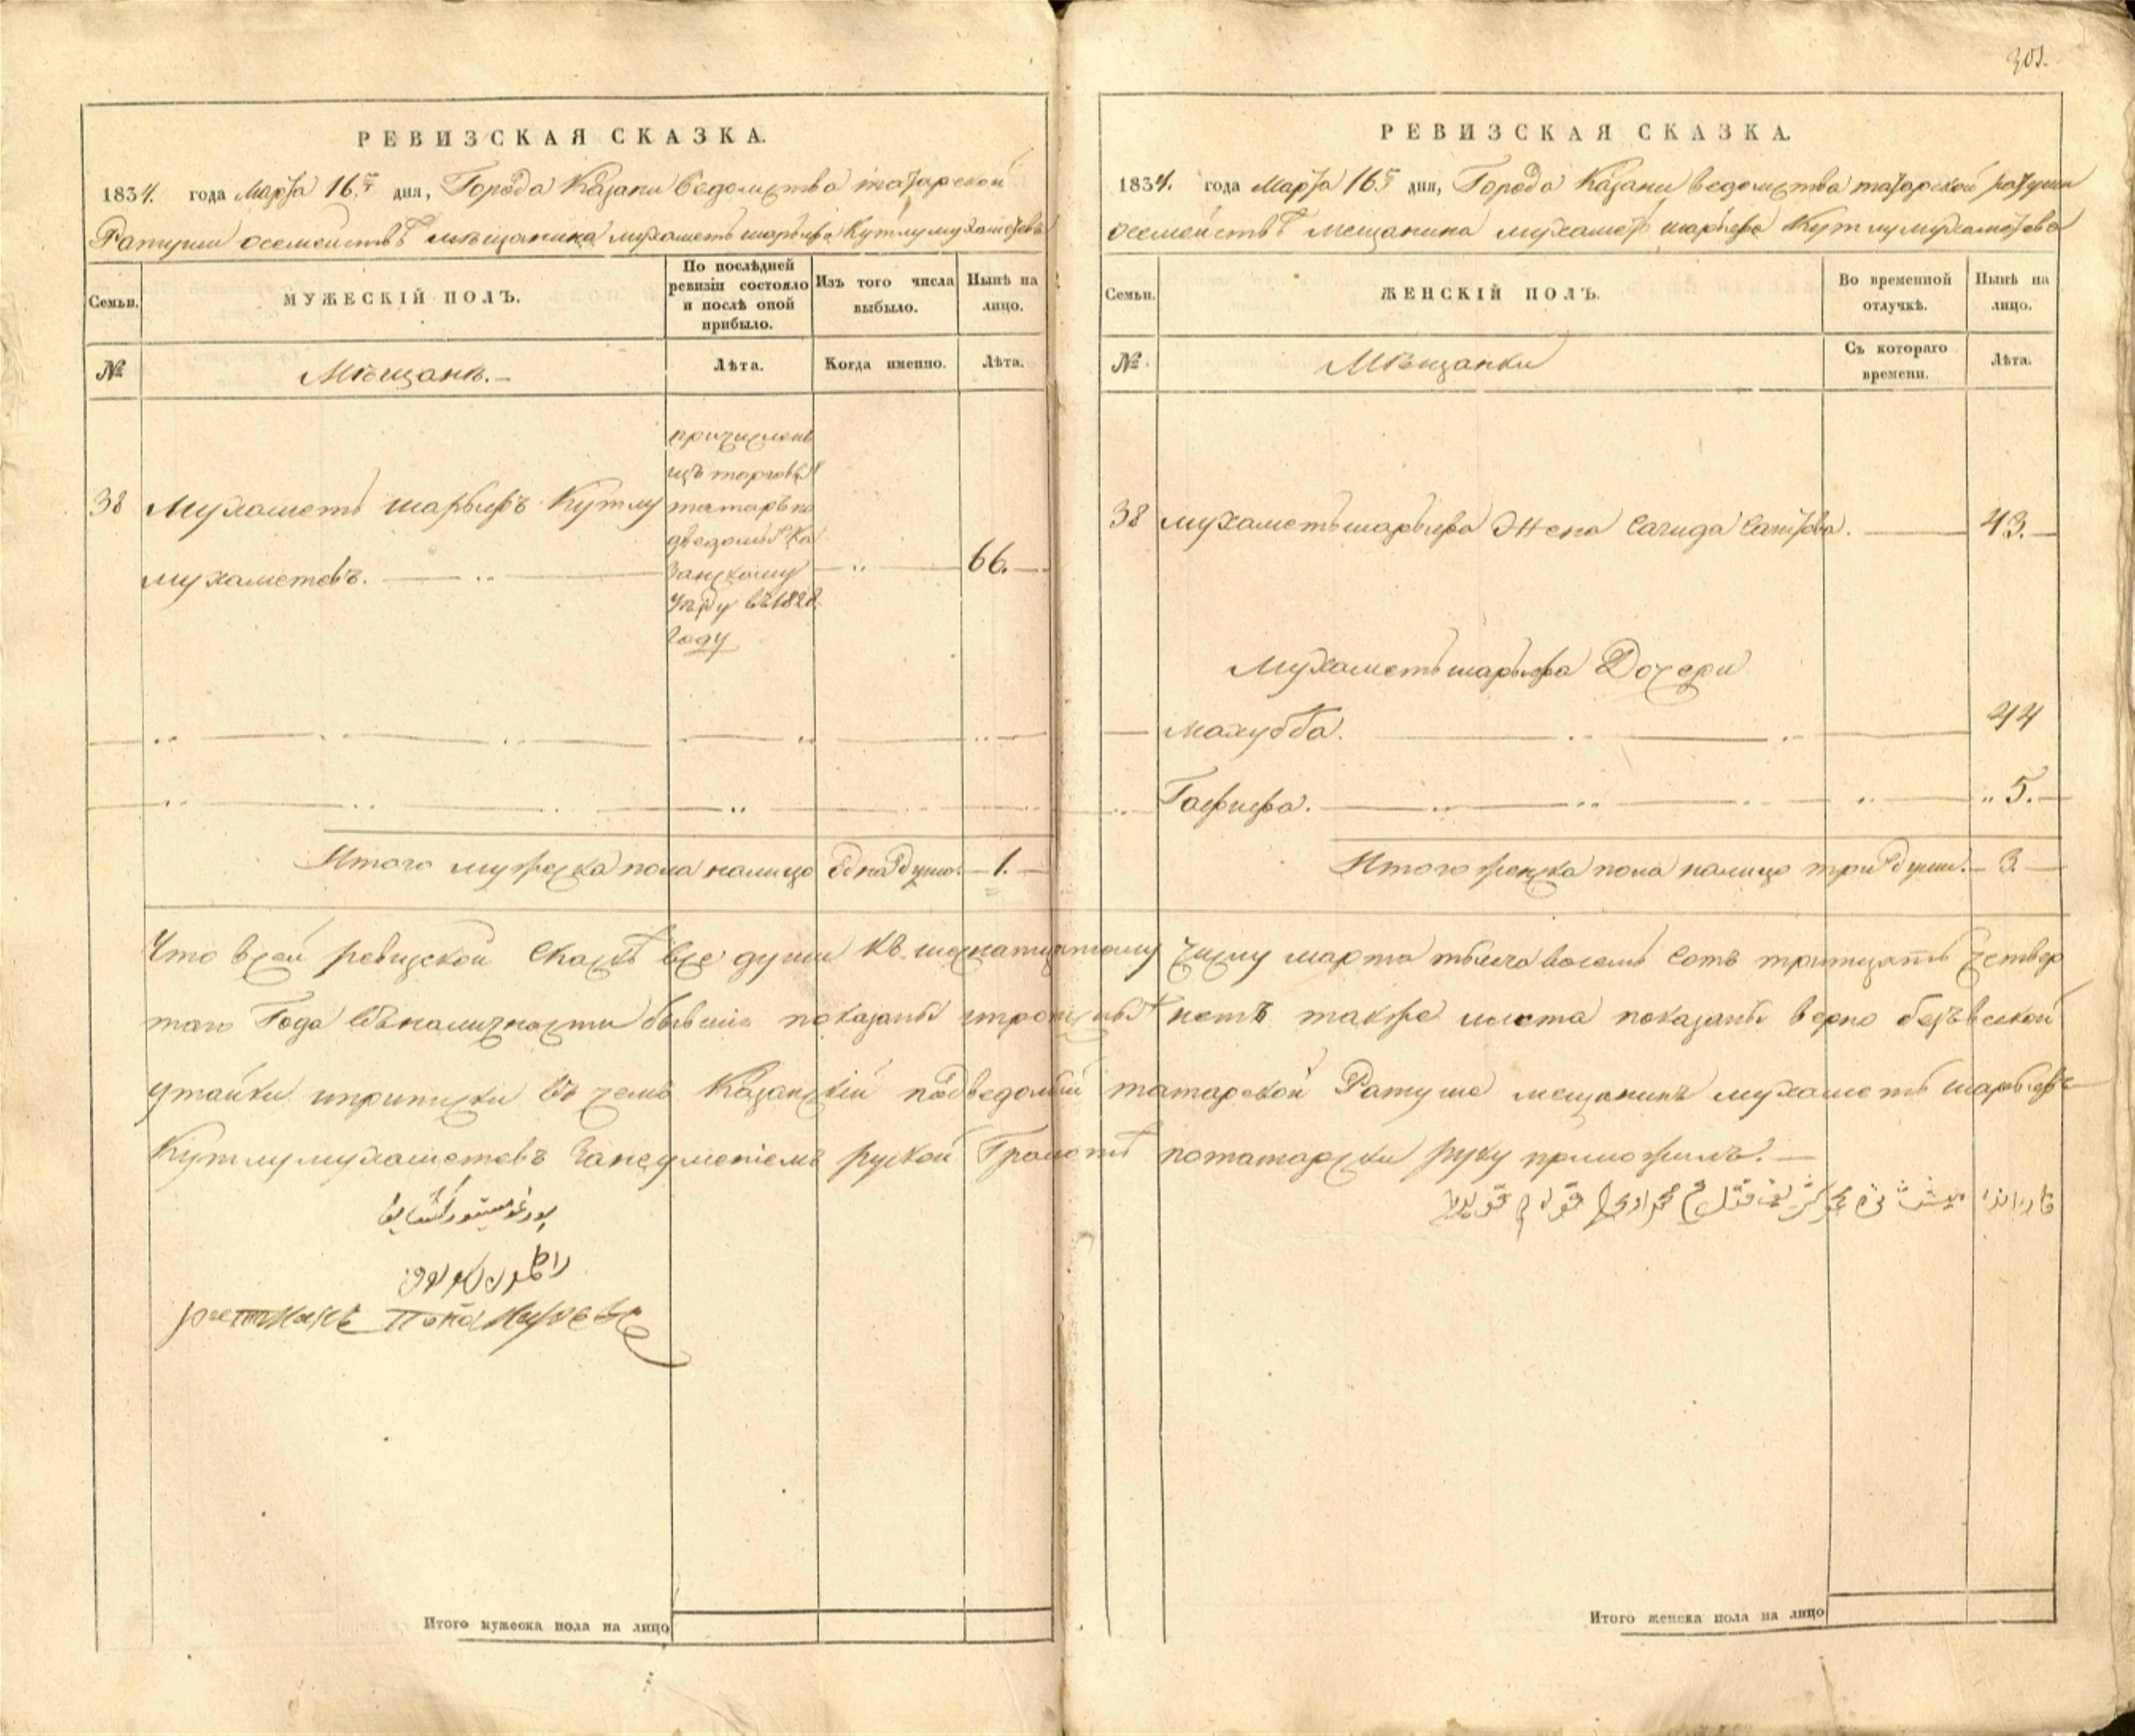 301.
РЕВИЗСКАЯ СКАЗКА.
1834. года Марта 16го дня, Города Казани ведомства татарской
Ратуши осемействѣ мѣщанина мухаметь шарыпа Кутлумухаметева
Семьи.
МУЖЕСКІЙ ПОЛЪ.
По послѣдней ревизіи состояло и послѣ оной прибыло.
Изъ того числа выбыло.
Нынѣ на лицо.
№
Мѣщанъ.
Лѣта.
Когда именно.
Лѣта.
38 Мухаметь шарыпъ Кутлу
мухаметевъ.
причислень
изъ торговых
татаръ по
дведомых Ка
занскому
уѣзду въ 1828
году
66.
Итого мужеска пола налицо Една душа. 1.
РЕВИЗСКАЯ СКАЗКА.
1834. года Марта 16го дня, Города Казани ведомства татарской ратуши
осемействѣ мещанина мухаметь шарыпа Кутлумухаметева
Семьи.
ЖЕНСКІЙ ПОЛЪ.
Во временной отлучкѣ.
Нынѣ на лицо.
№
Мѣщанки
Съ котораго времени.
Лѣта.
38 мухаметьшарыпа Жена Сагида Саитова. 43.
Мухаметьшарыпа Дочери
Махубба.
Гафифа. 5.
Итого женска пола налицо три души. 3.
Что всей ревизской Сказкѣ все души къ шеснатцатому числу марта тысеча восемь сотъ тритцать четвер
таго Года въналичности бывшие показаны ипрописных нетъ также илета показаны верно безъвсякой
утайки иприписки въ чемъ Казанскій подведомый татарской Ратуше мещанинъ мухаметь шарыпъ
Кутлумухаметевъ занеуменіемъ руской Грамотѣ потатарски руку приложилъ.
Итого мужеска пола на лицо
Итого женска пола на лицо